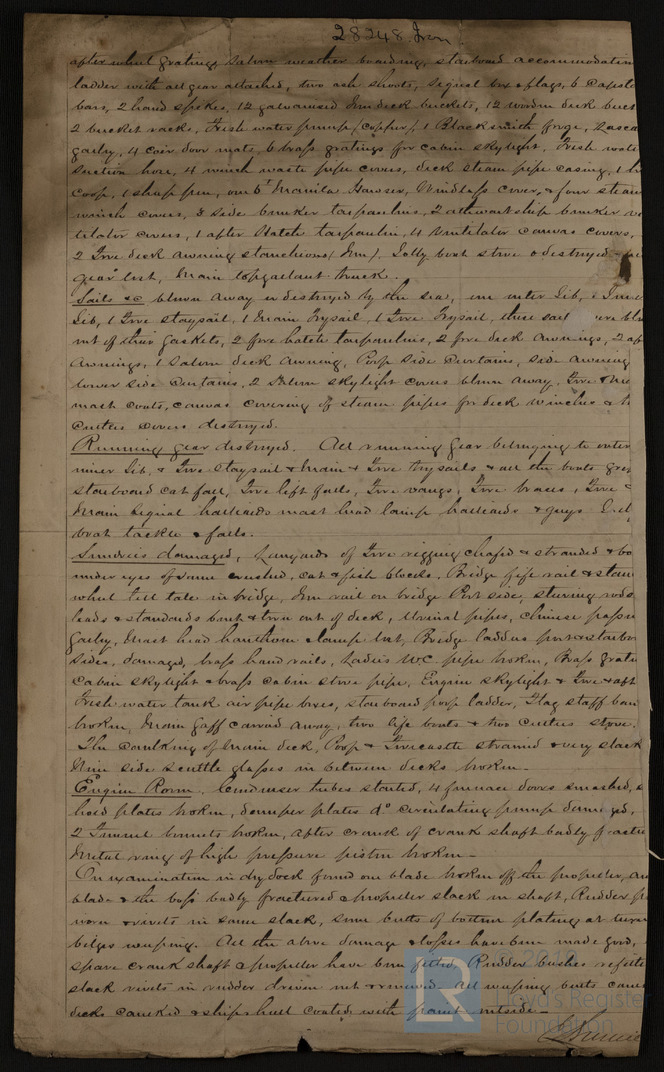 28248 Iron
after wheel gratings, Saloon weather boarding, starboard accommodation
ladder with all gear attached, two ash shoots, signal box & flags, 6 Capstan
bars, 2 hand spikes, 12 galvanised Iron deck buckets, 12 wooden deck buck
2 bucket racks, Fresh water pump (copper), 1 Blacksmith forge,
galley, 4 Coir door mats, 6 brass gratings for cabin skylight, Fresh wate
Suction hose, 4 winch waste pipe covers, deck steam pipe casing, 1 h
coop, 1 sheep pen, one 6" Manilla Hawser, Windlass cover, & four steam
winch covers, 8 side bunker tarpaulins, 2 athwartship bunker ve
tilator covers, 1 after Hatch tarpaulin, 4 Ventilator canvas covers,
2 Fore deck awning stanchions (Iron). Jolly boat stove & destroyed
gear lost, Main topgallant truck.
Sails &c blown away or destroyed by the sea, one outer Jib, 1 Inner
Jib, 1 Fore staysail, 1 Main Trysail, 1 Fore Trysail, these sails were blo
out of their gaskets, 2 fore hatch tarpaulins, 2 fore deck awnings, 2 af
Awnings, 1 Saloon deck Awning, Poop side Curtains, side awning
lower side Curtains, 2 Saloon skylight covers blown away. Fore &
mast coats, canvas covering of steam pipes for deck winches &
Cutter covers destroyed.
Running gear destroyed. All running gear belonging to outer
inner Jib, & Fore staysail & Main & Fore trysails & all the boats
starboard cat fall, Fore lift falls, Fore vangs, Fore braces, Fore &
Main Signal halliards mast head lamp halliards & guys
boat tackle & falls.
Sundries damaged, Lanyards of Fore rigging chafed & stranded & bo
under eyes of same crushed, cat & fish blocks, Bridge fife rail &
wheel tell tale in bridge, Iron rail on bridge Port side, steering rods
leads & standards bent & torn out of deck, Urinal pipes, chinese passen
galley, Mast head lanthorn & lamp lost, Bridge ladders port & starboar
sides, damaged, brass hand rails, Ladies WC pipe broken, Brass grati
Cabin skylight & brass cabin stove pipe, Engine skylight & Fore & aft
Fresh water tank air pipe boxes, starboard poop ladder, Flag staff
broken, Main Gaff carried away, two life boats & two Cutters stove.
The Caulking of Main deck, Poop & Forecastle strained & very slack
Nine side scuttle glasses in between decks broken —
Engine Room. Condenser tubes started, 4 furnace doors smashed,
hold plates broken, damper plates do circulating pump damaged,
2 Tunnel bonnets broken, after crank of crank shaft badly fractu
Metal ring of high pressure piston broken —
On examination in dry dock found one blade broken off the propeller,
blade & the boss badly fractured & propeller slack in shaft, Rudder
worn & rivets in same slack, some butts of bottom plating at turn
bilges weeping. All the above damage & losses have been made good,
spare crank shaft & propeller have been fitted, Rudder bushes refitte
slack rivets in rudder driven out & renewed. All weeping butts cau
decks caulked & ships hull coated with paint outside —
© 201
Lloyd's Register
Foundation